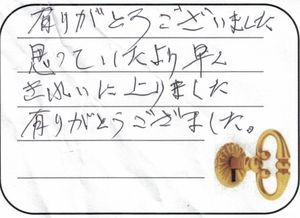 有りがとうございました
思っていたより早く
きれいに上りました
有りがとうござました。